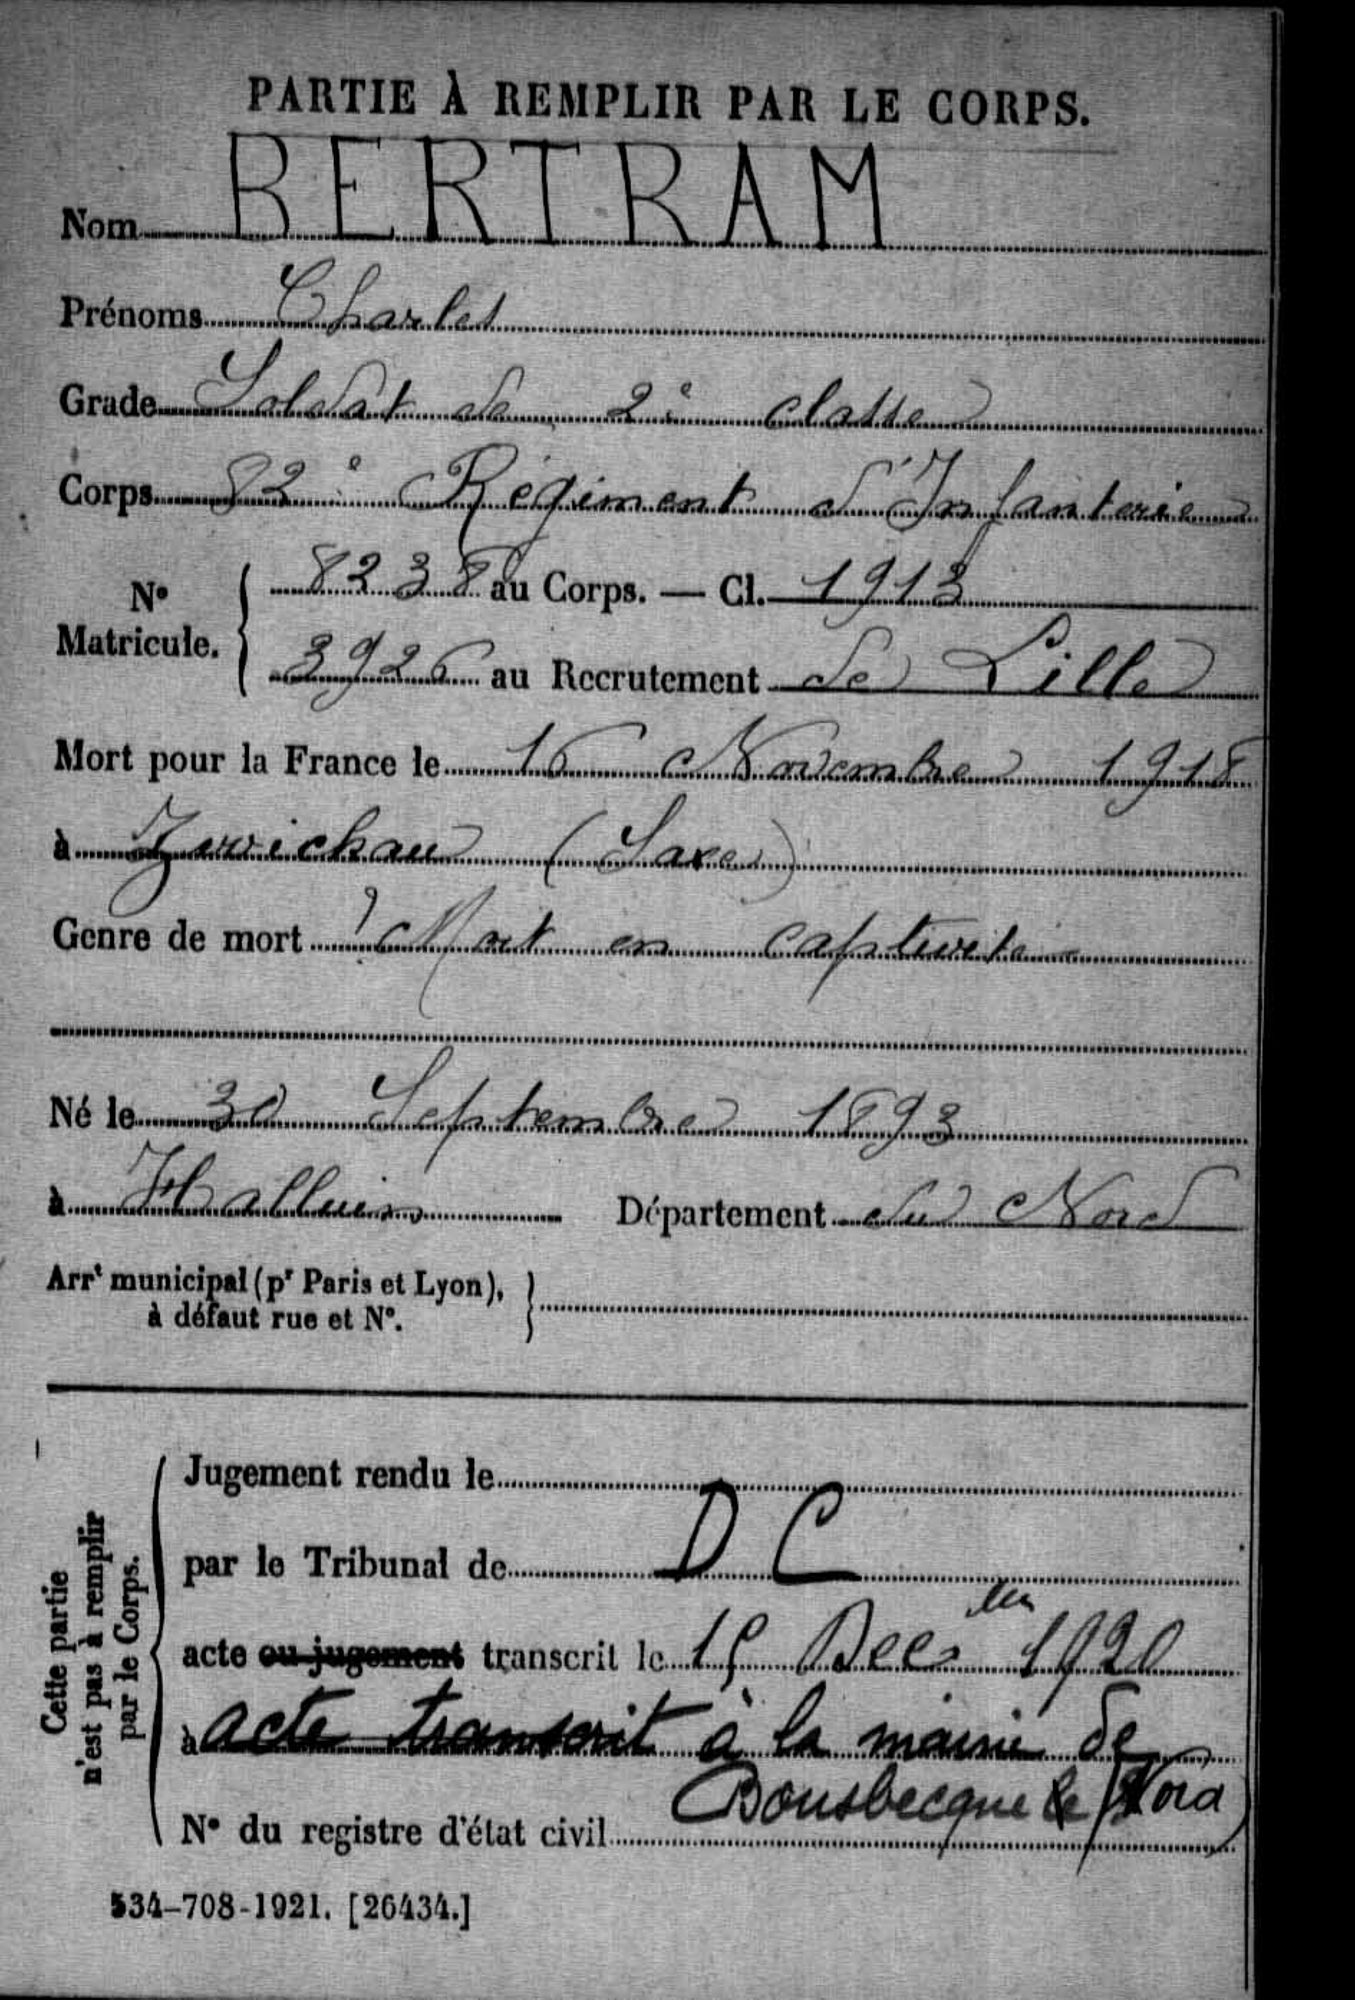 PARTIE À REMPLIR PAR LE CORPS.
Nom BERTRAM
Prénoms Charles
Grade Soldat de 2e classe
Corps 82e Régiment d'Infanterie
No Matricule. { 8238 au Corps. — Cl. 1913
3926 au Recrutement de Lille
Mort pour la France le 16 Novembre 1918
à Zwichau (Saxe)
Genre de mort Mort en captivité
Né le 30 Septembre 1893
à Halluin Département du Nord
Arrt municipal (pr Paris et Lyon), }
à défaut rue et No.
Cette partie n'est pas à remplir par le Corps.
Jugement rendu le
par le Tribunal de D C
acte ou jugement transcrit le 15 Dec 1920
à acte transcrit à la mairie de
Bousbecque (Nord)
No du registre d'état civil
534-708-1921. [26434.]